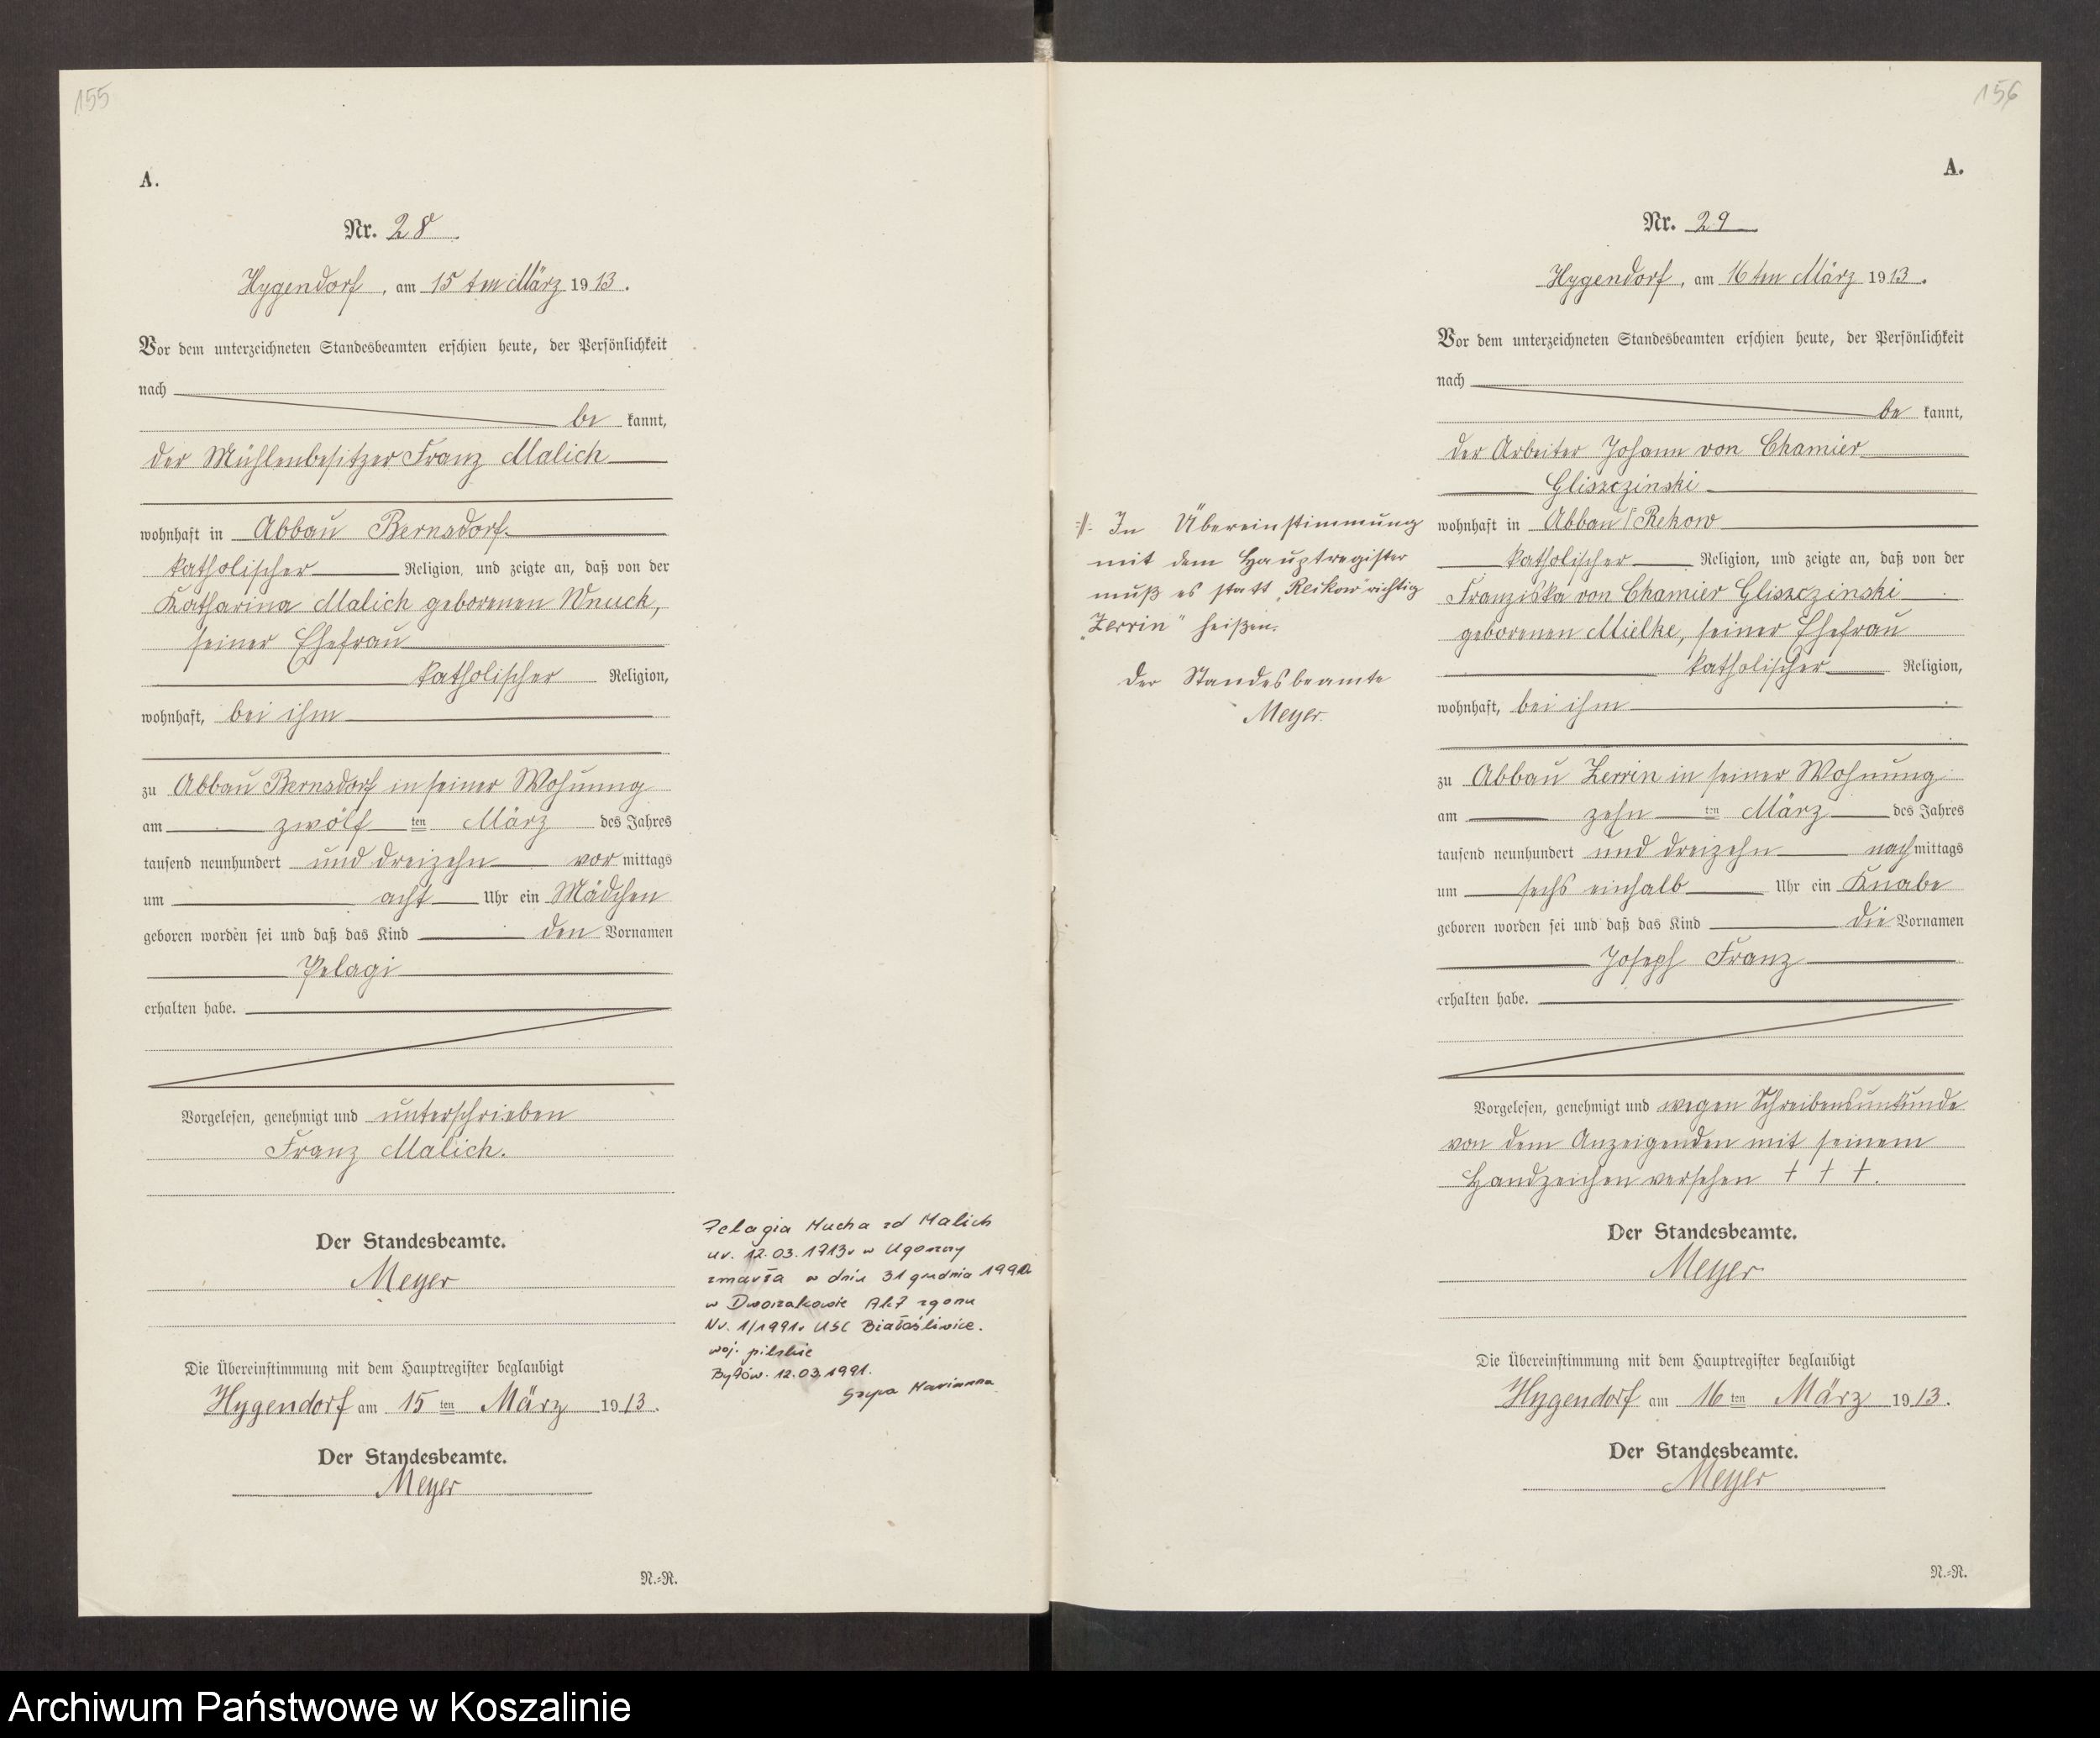 155
A.
Nr. 28
Hygendorf, am 15 ten März 1913.
Vor dem unterzeichneten Standesbeamten erschien heute, der Persönlichkeit
nach
be kannt,
der Mühlenbesitzer Franz Malich
wohnhaft in Abbau Bernsdorf.
katholischer Religion, und zeigte an, daß von der
Katharina Malich geborenen Wnuck,
seiner Ehefrau
katholischer Religion,
wohnhaft, bei ihm
zu Abbau Bernsdorf in seiner Wohnung
am zwölf ten März des Jahres
tausend neunhundert und dreizehn vor mittags
um acht Uhr ein Mädchen
geboren worden sei und daß das Kind den Vornamen
Pelagi
erhalten habe.
Vorgelesen, genehmigt und unterschrieben
Franz Malich.
Der Standesbeamte.
Meyer
Die Übereinstimmung mit dem Hauptregister beglaubigt
Hygendorf am 15 ten März 1913.
Der Standesbeamte.
Meyer
N.-R.
Pelagia Mucha zd Malich
ur. 12.03.1913r w Ugoszczy
zmarła w dniu 31 grudnia 1990
w Dworzakowie Akt zgonu
Nr. 1/1991r USC Białośliwice.
woj. pilskie
Bytów. 12.03.1991.
Marianna
156
A.
Nr. 29
Hygendorf, am 16 ten März 1913.
Vor dem unterzeichneten Standesbeamten erschien heute, der Persönlichkeit
nach
be kannt,
der Arbeiter Johann von Chamier
Gliszczinski
wohnhaft in Abbau Rekow
katholischer Religion, und zeigte an, daß von der
Franziska von Chamier Gliszczinski
geborenen Mielke, seiner Ehefrau
katholischer Religion,
wohnhaft, bei ihm
zu Abbau Zerrin in seiner Wohnung
am zehn ten März des Jahres
tausend neunhundert und dreizehn nach mittags
um sechs einhalb Uhr ein Knabe
geboren worden sei und daß das Kind die Vornamen
Joseph Franz
erhalten habe.
Vorgelesen, genehmigt und wegen Schreibensunkunde
von dem Anzeigenden mit seinem
Handzeichen versehen + + +.
Der Standesbeamte.
Meyer
Die Übereinstimmung mit dem Hauptregister beglaubigt
Hygendorf am 16 ten März 1913.
Der Standesbeamte.
Meyer
N.-R.
In Übereinstimmung
mit dem Hauptregister
muß es statt "Reikow" richtig
„Zerrin" heißen.
Der Standesbeamte
Meyer.
Archiwum Państwowe w Koszalinie